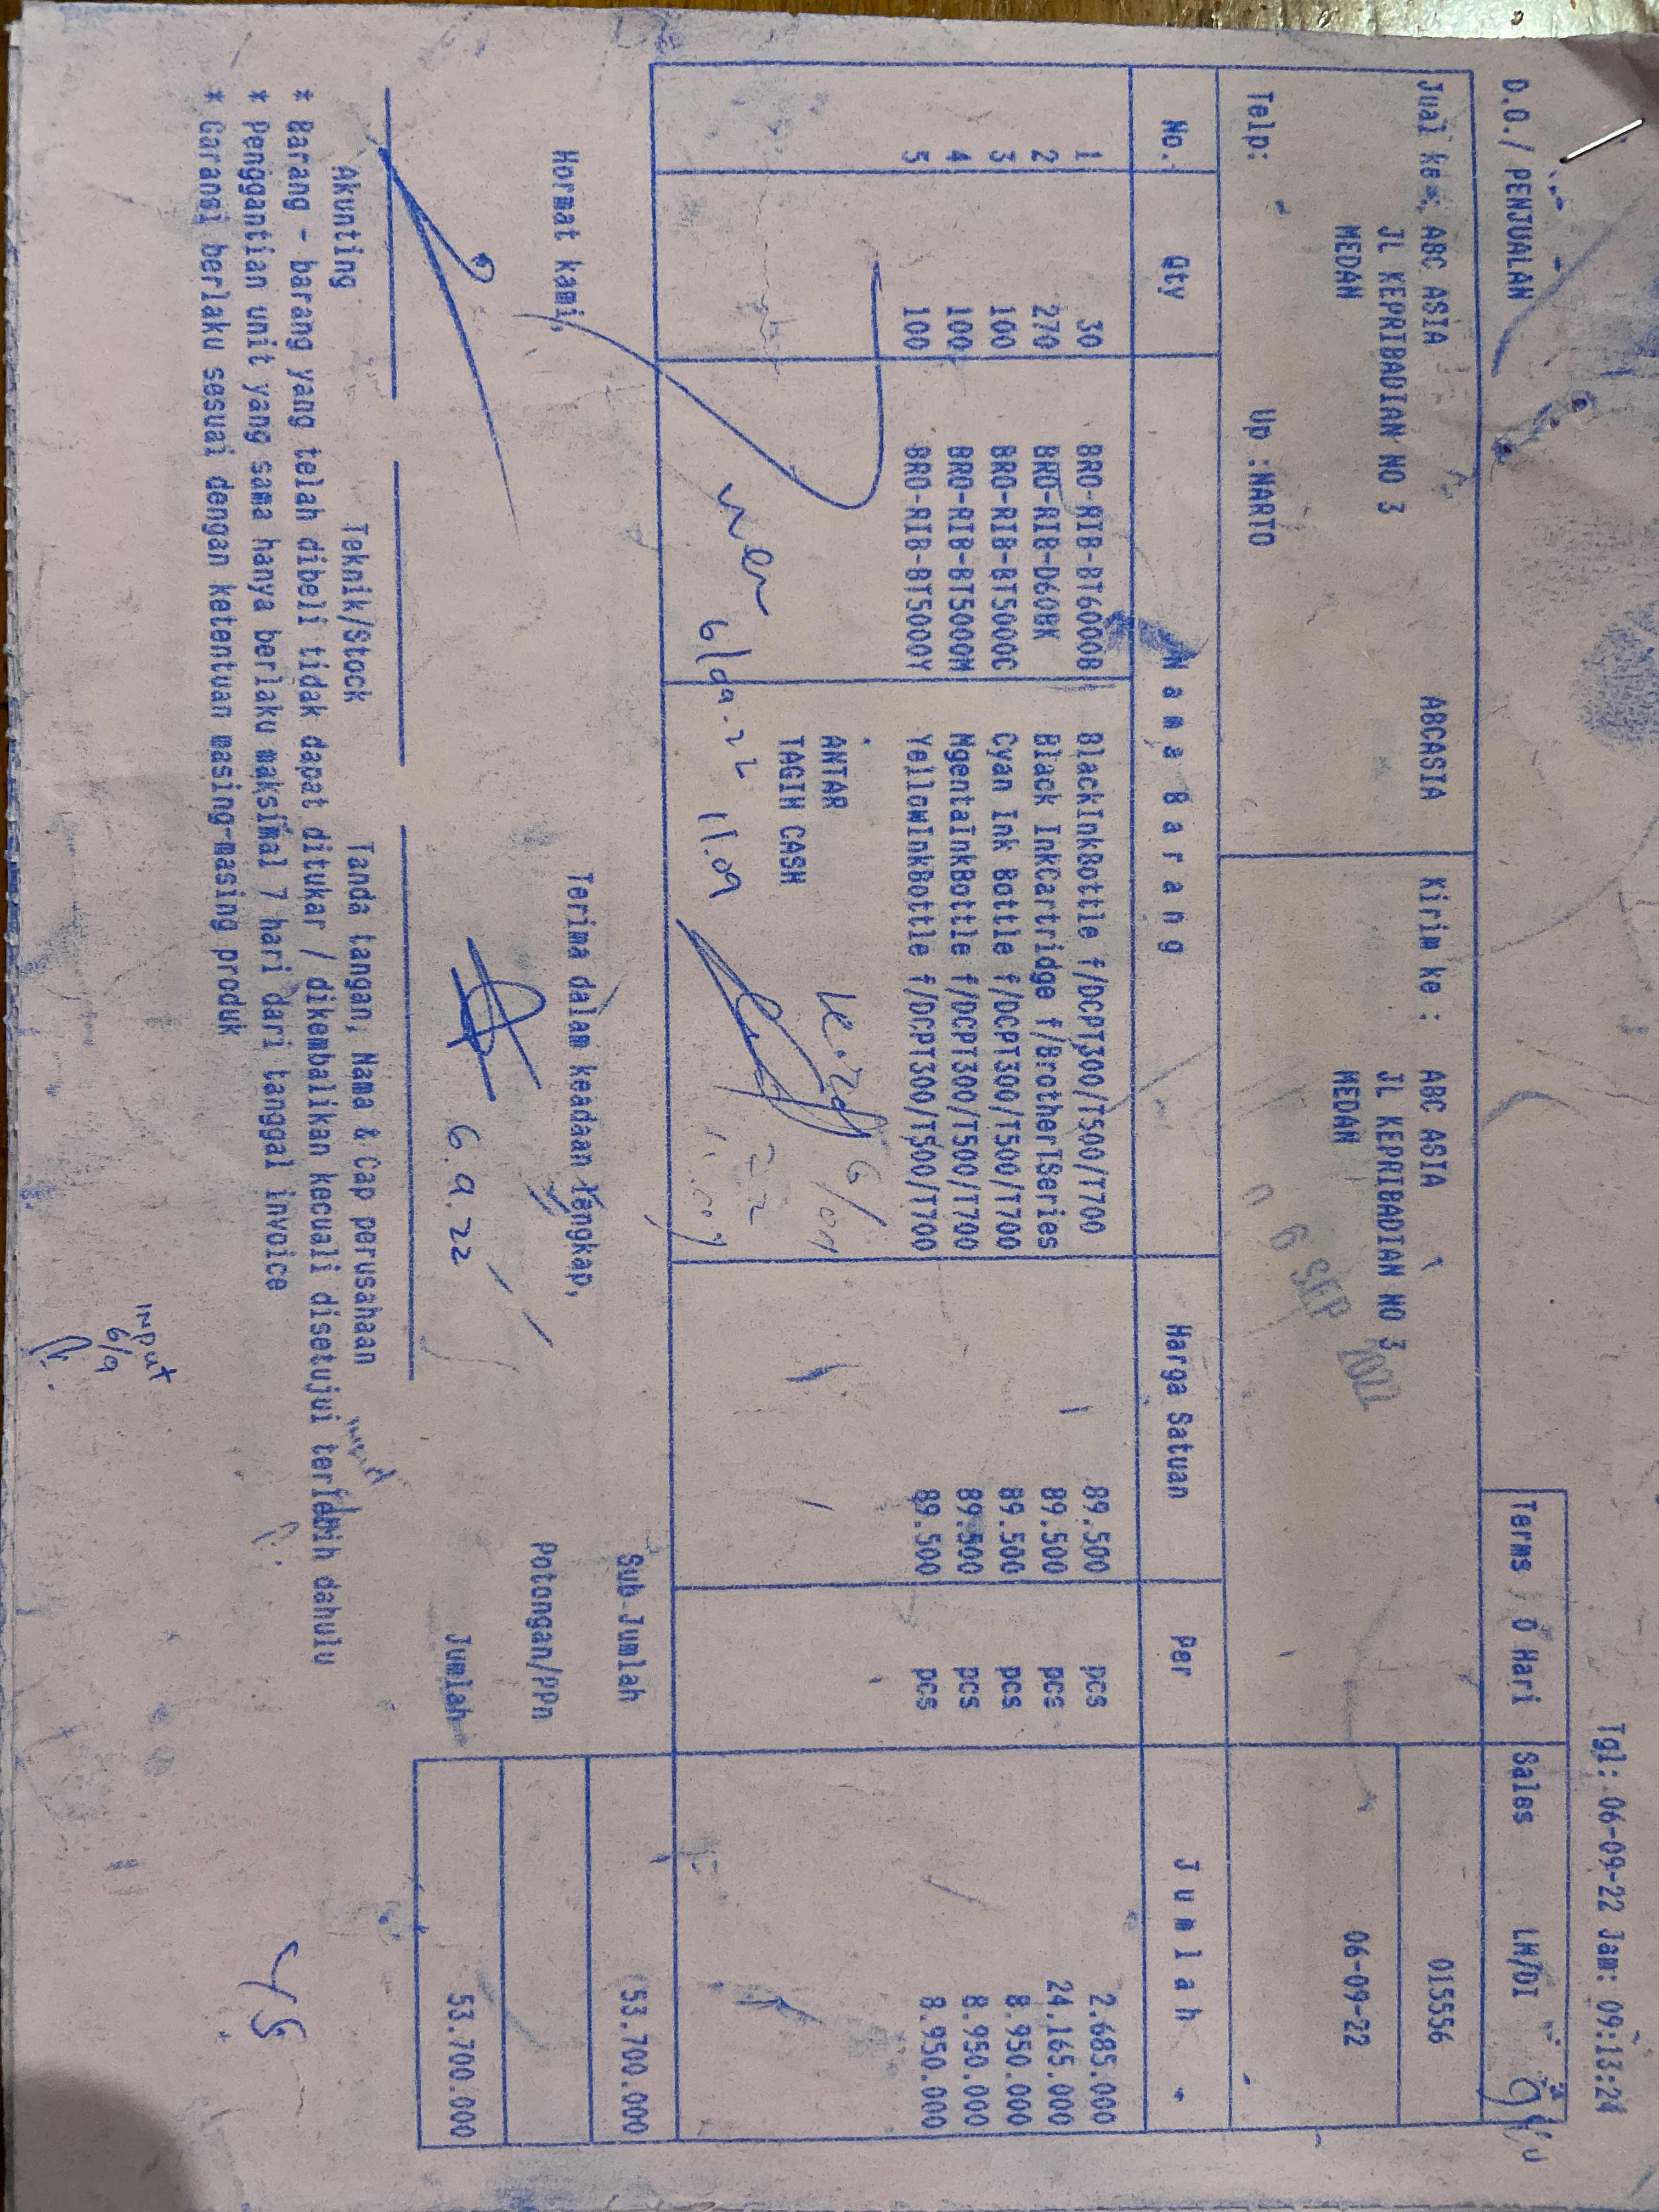 Tgl: 06-09-22 Jam: 09:13:24
D.O./ PENJUALAN
Terms / 0 Hari Sales LM/DI
Jual ke : ABC ASIA ABCASIA Kirim ke : ABC ASIA 015556
JL KEPRIBADIAN NO 3 JL KEPRIBADIAN NO 3
MEDAN MEDAN 06-09-22
06 SEP 2022
Telp: - Up :NARTO
No. Qty N a m a B a r a n g Harga Satuan Per J u m l a h
1 30 BRO-RIB-BT6000B BlackInkBottle f/DCPT300/T500/T700 89.500 pcs 2.685.000
2 270 BRO-RIB-D60BK Black InkCartridge f/BrotherTSeries 89.500 pcs 24.165.000
3 100 BRO-RIB-BT5000C Cyan Ink Bottle f/DCPT300/T500/T700 89.500 pcs 8.950.000
4 100 BRO-RIB-BT5000M MgentaInkBottle f/DCPT300/T500/T700 89.500 pcs 8.950.000
5 100 BRO-RIB-BT5000Y YellowInkBottle f/DCPT300/T500/T700 89.500 pcs 8.950.000
ANTAR
TAGIH CASH
6/09.22 11.09
Sub Jumlah 53.700.000
Hormat kami, Terima dalam keadaan lengkap,
Potongan/PPn
6.9.22
Jumlah 53.700.000
Akunting Teknik/Stock Tanda tangan, Nama & Cap perusahaan
* Barang - barang yang telah dibeli tidak dapat ditukar / dikembalikan kecuali disetujui terlebih dahulu
* Penggantian unit yang sama hanya berlaku maksimal 7 hari dari tanggal invoice
* Garansi berlaku sesuai dengan ketentuan masing-masing produk
input
6/9